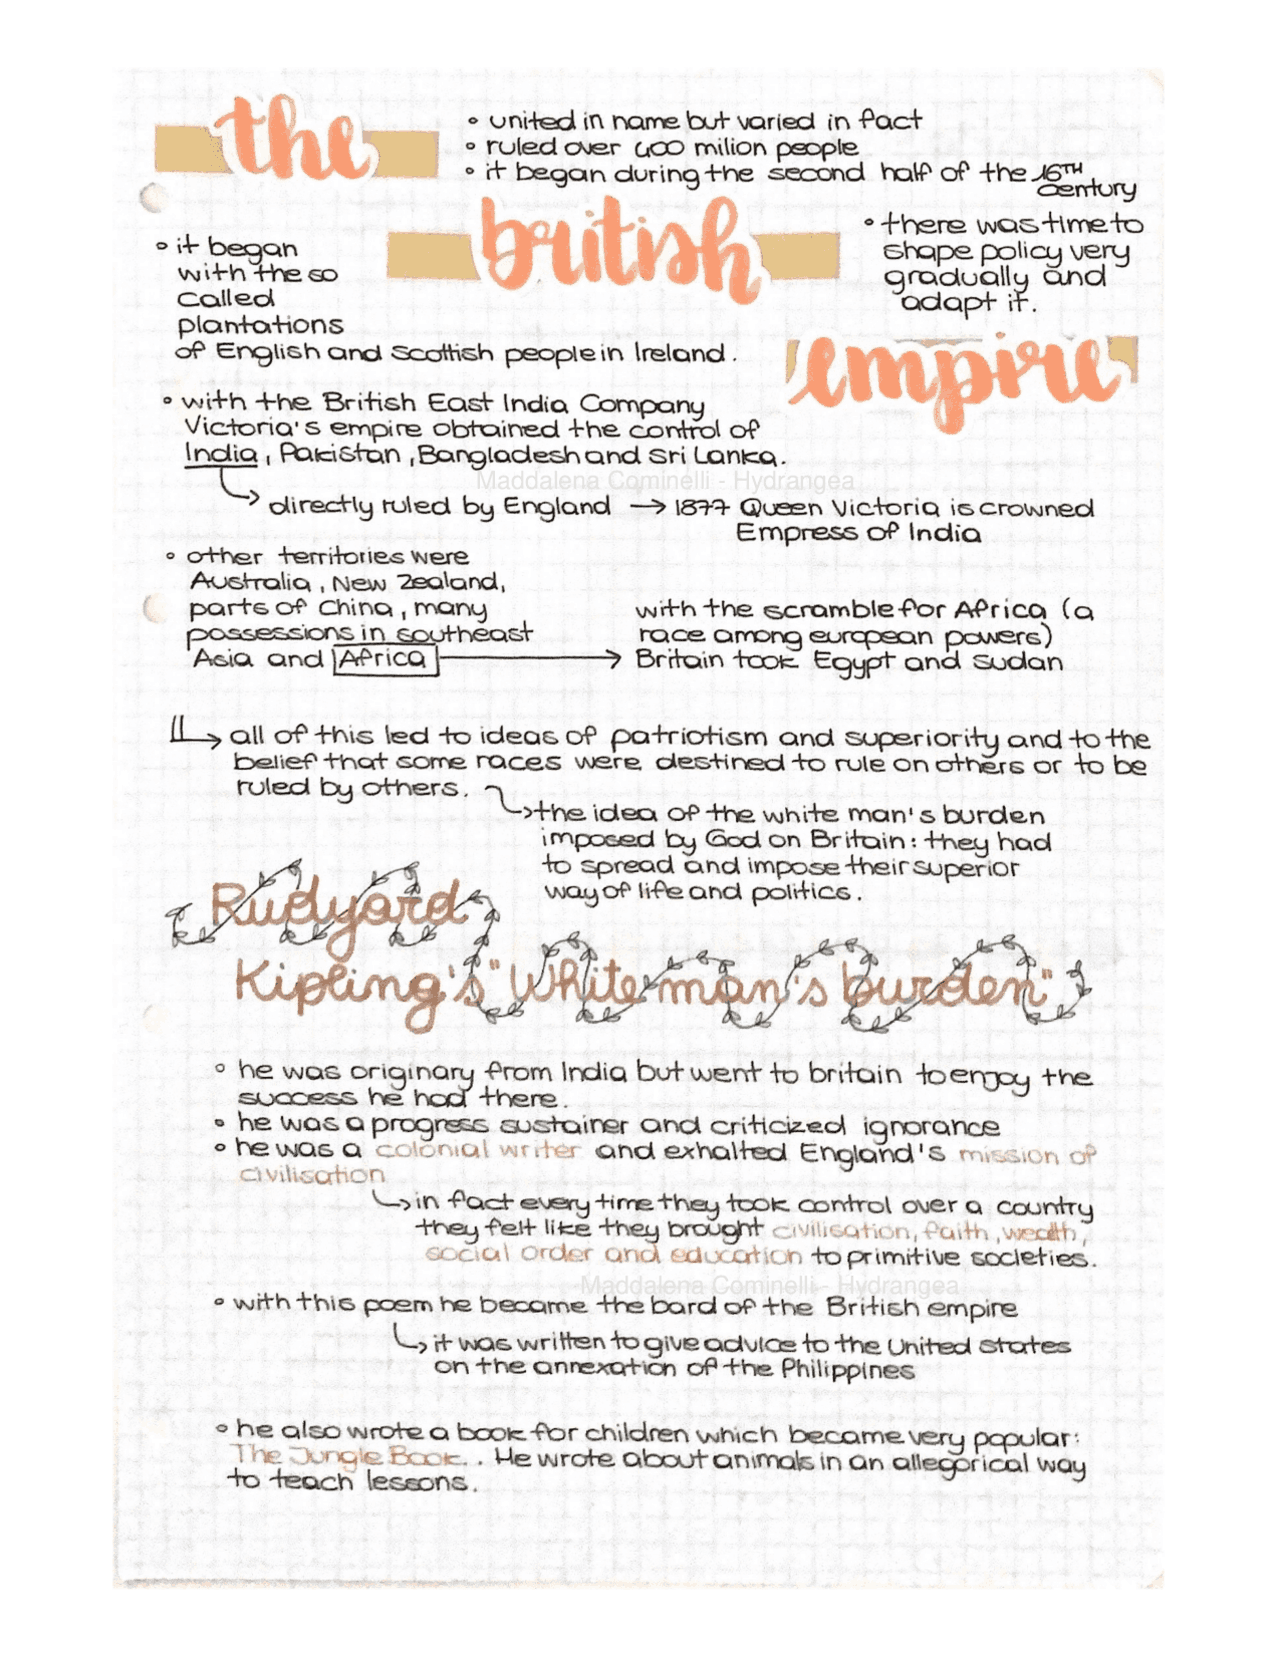 the
british
empire
° united in name but varied in fact
° ruled over 400 milion people
° it began during the second half of the 16TH
century
° there was time to
shape policy very
gradually and
adapt it.
° it began
with the so
called
plantations
of English and Scottish people in Ireland.
° with the British East India Company
Victoria's empire obtained the control of
India, Pakistan, Bangladesh and Sri Lanka.
Maddalena Cominelli - Hydrangea
↳ directly ruled by England → 1877 Queen Victoria is crowned
Empress of India
° other territories were
Australia, New Zealand,
parts of China, many
possessions in southeast
Asia and Africa →
with the scramble for Africa (a
race among european powers)
Britain took Egypt and Sudan
↳ all of this led to ideas of patriotism and superiority and to the
belief that some races were destined to rule on others or to be
ruled by others.
↳ the idea of the white man's burden
imposed by God on Britain: they had
to spread and impose their superior
way of life and politics.
Rudyard
Kipling's "White man's burden"
° he was originary from India but went to britain to enjoy the
success he had there.
° he was a progress sustainer and criticized ignorance
° he was a colonial writer and exhalted England's mission of
civilisation
↳ in fact every time they took control over a country
they felt like they brought civilisation, faith, wealth,
social order and education to primitive societies.
Maddalena Cominelli - Hydrangea
° with this poem he became the bard of the British empire
↳ it was written to give advice to the United States
on the annexation of the Philippines
° he also wrote a book for children which became very popular:
The Jungle Book. . He wrote about animals in an allegorical way
to teach lessons.